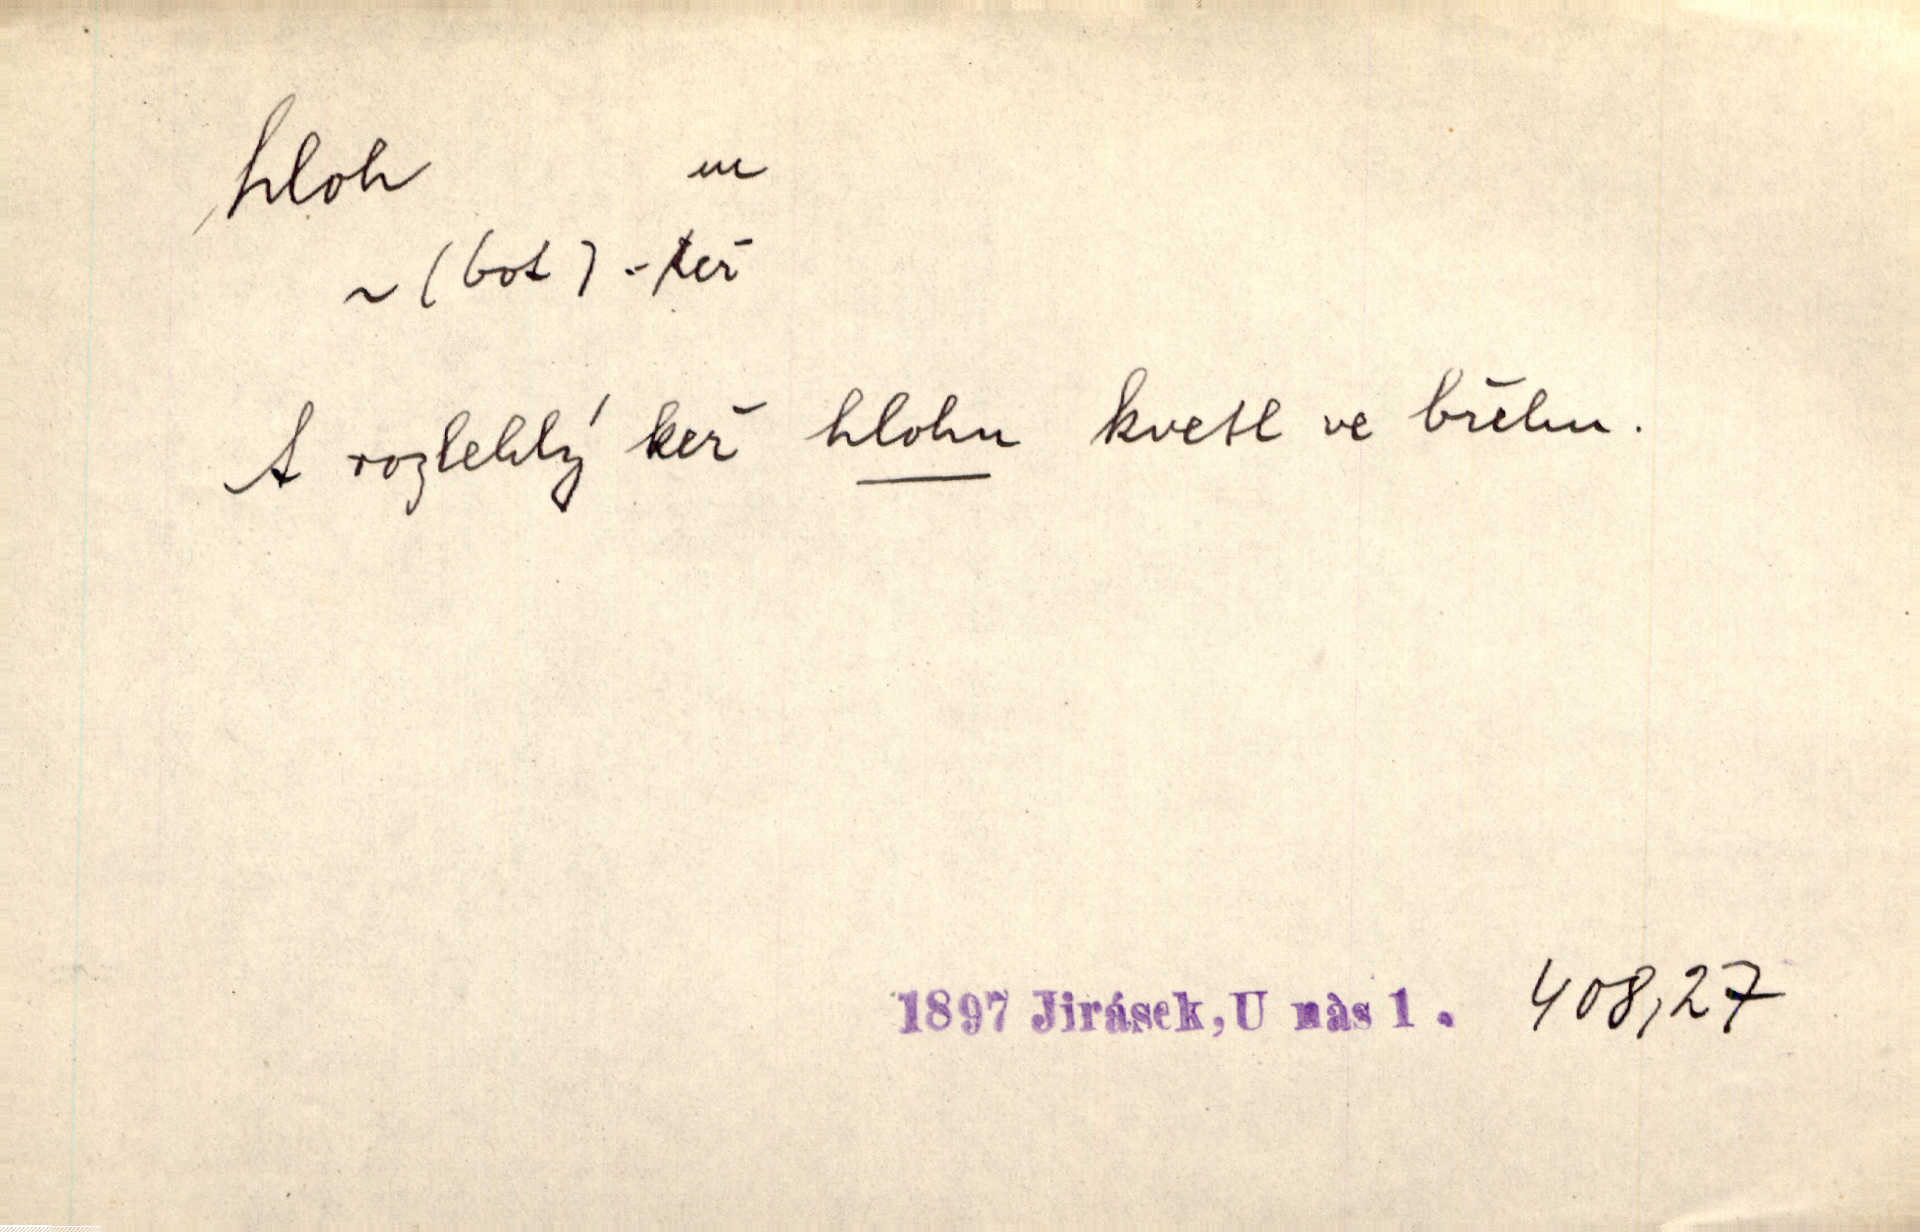 hloh m
~ (bot) - keř
A rozlehlý keř hlohu kvetl ve břehu.
1897 Jirásek, U nàs 1. 408,27